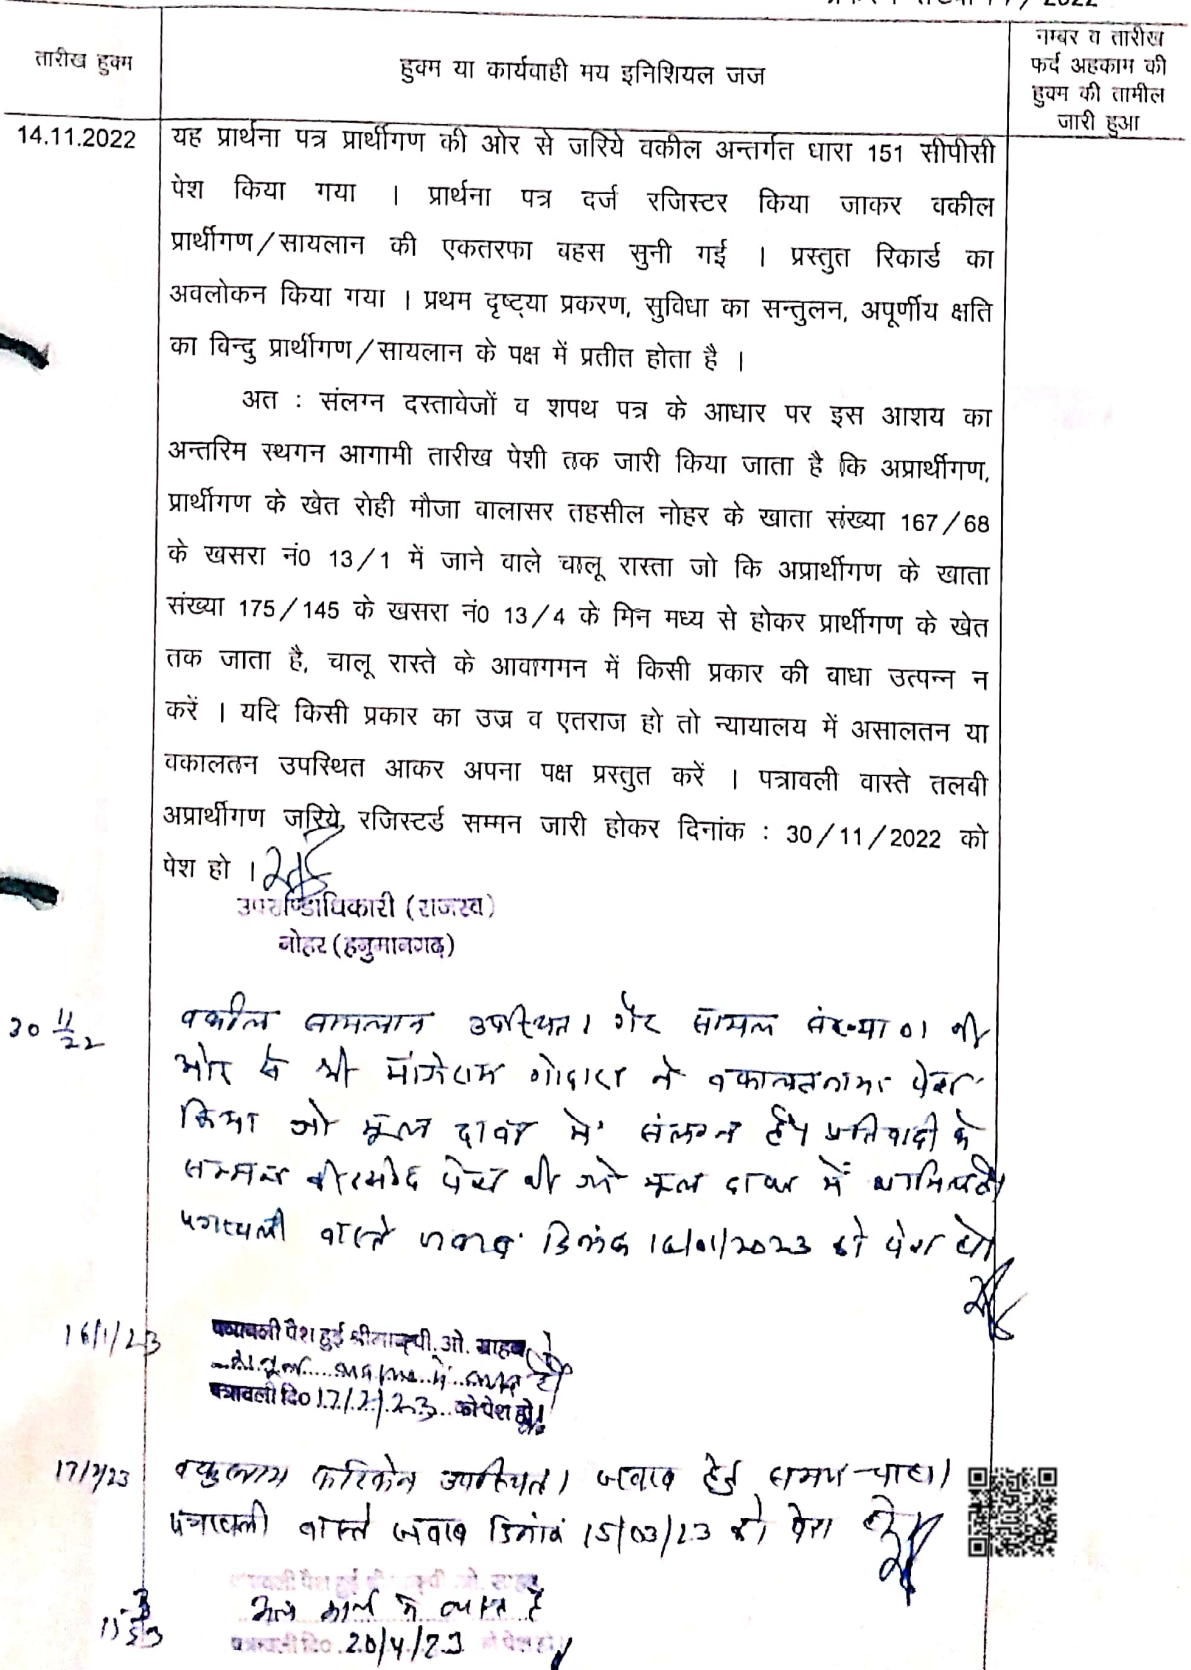 / 2022
तारीख हुक्म
हुक्म या कार्यवाही मय इनिशियल जज
नम्बर व तारीख
फर्द अहकाम की
हुक्म की तामील
जारी हुआ
14.11.2022
यह प्रार्थना पत्र प्रार्थीगण की ओर से जरिये वकील अन्तर्गत धारा 151 सीपीसी
पेश किया गया । प्रार्थना पत्र दर्ज रजिस्टर किया जाकर वकील
प्रार्थीगण/सायलान की एकतरफा बहस सुनी गई । प्रस्तुत रिकार्ड का
अवलोकन किया गया । प्रथम दृष्ट्या प्रकरण, सुविधा का सन्तुलन, अपूर्णीय क्षति
का विन्दु प्रार्थीगण/सायलान के पक्ष में प्रतीत होता है ।
अत : संलग्न दस्तावेजों व शपथ पत्र के आधार पर इस आशय का
अन्तरिम स्थगन आगामी तारीख पेशी तक जारी किया जाता है कि अप्रार्थीगण,
प्रार्थीगण के खेत रोही मौजा वालासर तहसील नोहर के खाता संख्या 167/68
के खसरा नं0 13/1 में जाने वाले चालू रास्ता जो कि अप्रार्थीगण के खाता
संख्या 175/145 के खसरा नं0 13/4 के मिन मध्य से होकर प्रार्थीगण के खेत
तक जाता है, चालू रास्ते के आवागमन में किसी प्रकार की बाधा उत्पन्न न
करें । यदि किसी प्रकार का उज्र व एतराज हो तो न्यायालय में असालतन या
वकालतन उपस्थित आकर अपना पक्ष प्रस्तुत करें । पत्रावली वास्ते तलबी
अप्रार्थीगण जरिये रजिस्टर्ड सम्मन जारी होकर दिनांक : 30/11/2022 को
पेश हो ।
उपखण्डाधिकारी (राजस्व)
नोहर (हनुमानगढ़)
30 11/22
वकील सायलान उपस्थित। गैर सायल संख्या 01 की
ओर से श्री मांगेराम गोदारा ने वकालतनामा पेश
किया जो मूल दावा में संलग्न है। प्रतिवादी के
सम्मन पेश की जो मूल दावा में शामिल है।
पत्रावली वास्ते जवाब दिनांक 16/01/2023 को पेश हो
16/1/23
पत्रावली पेश हुई श्रीमान पी. ओ. साहब
पत्रावली दि0 17/2/23 को पेश हो।
17/2/23
वकुलाय फरिकेन उपस्थित। जवाब हेतु समय चाहा।
पत्रावली वास्ते जवाब दिनांक 15/03/23 को पेश हो
15/3/23
अन्य कार्य में व्यस्त है
पत्रावली दि0 20/4/23 को पेश हो।